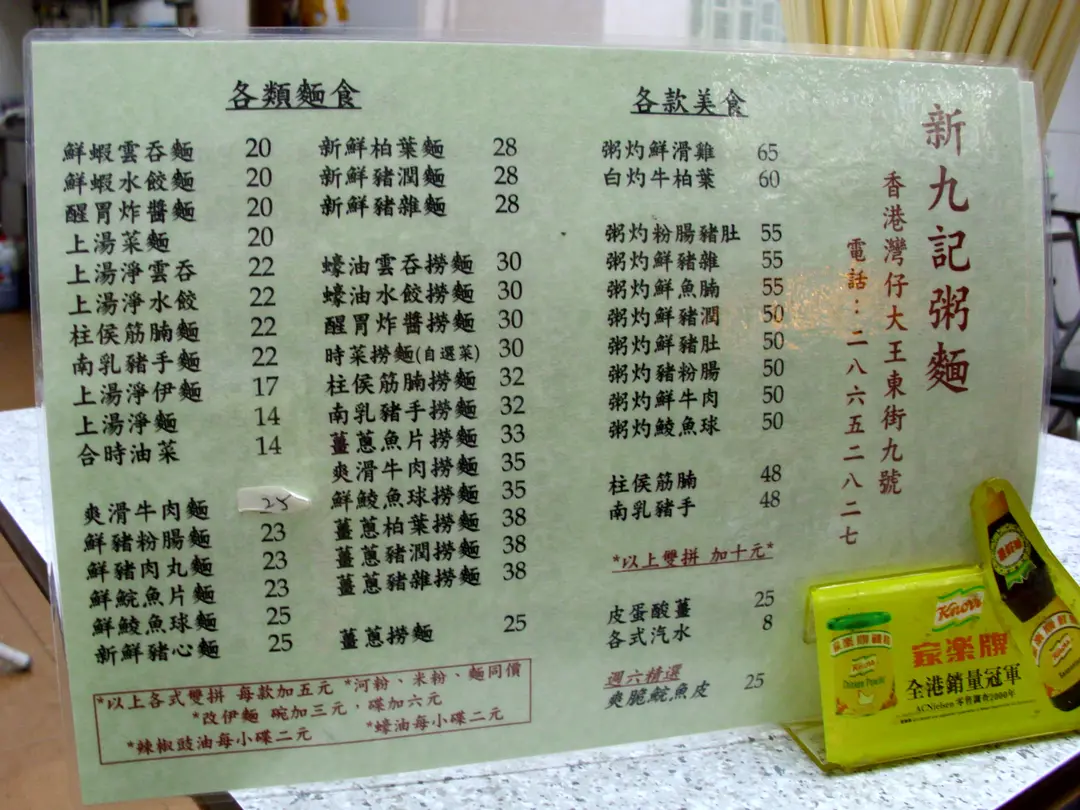 各類麵食
鮮蝦雲吞麵 20
鮮蝦水餃麵 20
醒胃炸醬麵 20
上湯菜麵 20
上湯淨雲吞 22
上湯淨水餃 22
柱侯筋腩麵 22
南乳豬手麵 22
上湯淨伊麵 17
上湯淨麵 14
合時油菜 14
爽滑牛肉麵 25
鮮豬粉腸麵 23
鮮豬肉丸麵 23
鮮鯇魚片麵 23
鮮鯪魚球麵 25
新鮮豬心麵 25
新鮮柏葉麵 28
新鮮豬潤麵 28
新鮮豬雜麵 28
蠔油雲吞撈麵 30
蠔油水餃撈麵 30
醒胃炸醬撈麵 30
時菜撈麵(自選菜) 30
柱侯筋腩撈麵 32
南乳豬手撈麵 32
薑蔥魚片撈麵 33
爽滑牛肉撈麵 35
鮮鯪魚球撈麵 35
薑蔥柏葉撈麵 38
薑蔥豬潤撈麵 38
薑蔥豬雜撈麵 38
薑蔥撈麵 25
*以上各式雙拼 每款加五元 *河粉、米粉、麵同價
*改伊麵 碗加三元，碟加六元
*辣椒豉油每小碟二元 *蠔油每小碟二元
各款美食
粥灼鮮滑雞 65
白灼牛柏葉 60
粥灼粉腸豬肚 55
粥灼鮮豬雜 55
粥灼鮮魚腩 55
粥灼鮮豬潤 50
粥灼鮮豬肚 50
粥灼豬粉腸 50
粥灼鮮牛肉 50
粥灼鯪魚球 50
柱侯筋腩 48
南乳豬手 48
*以上雙拼 加十元*
皮蛋酸薑 25
各式汽水 8
週六精選
爽脆鯇魚皮 25
新九記粥麵
香港灣仔大王東街九號
電話：二八六五二八二七
Knorr
家樂牌
全港銷量冠軍
ACNielsen 零售調查2000年